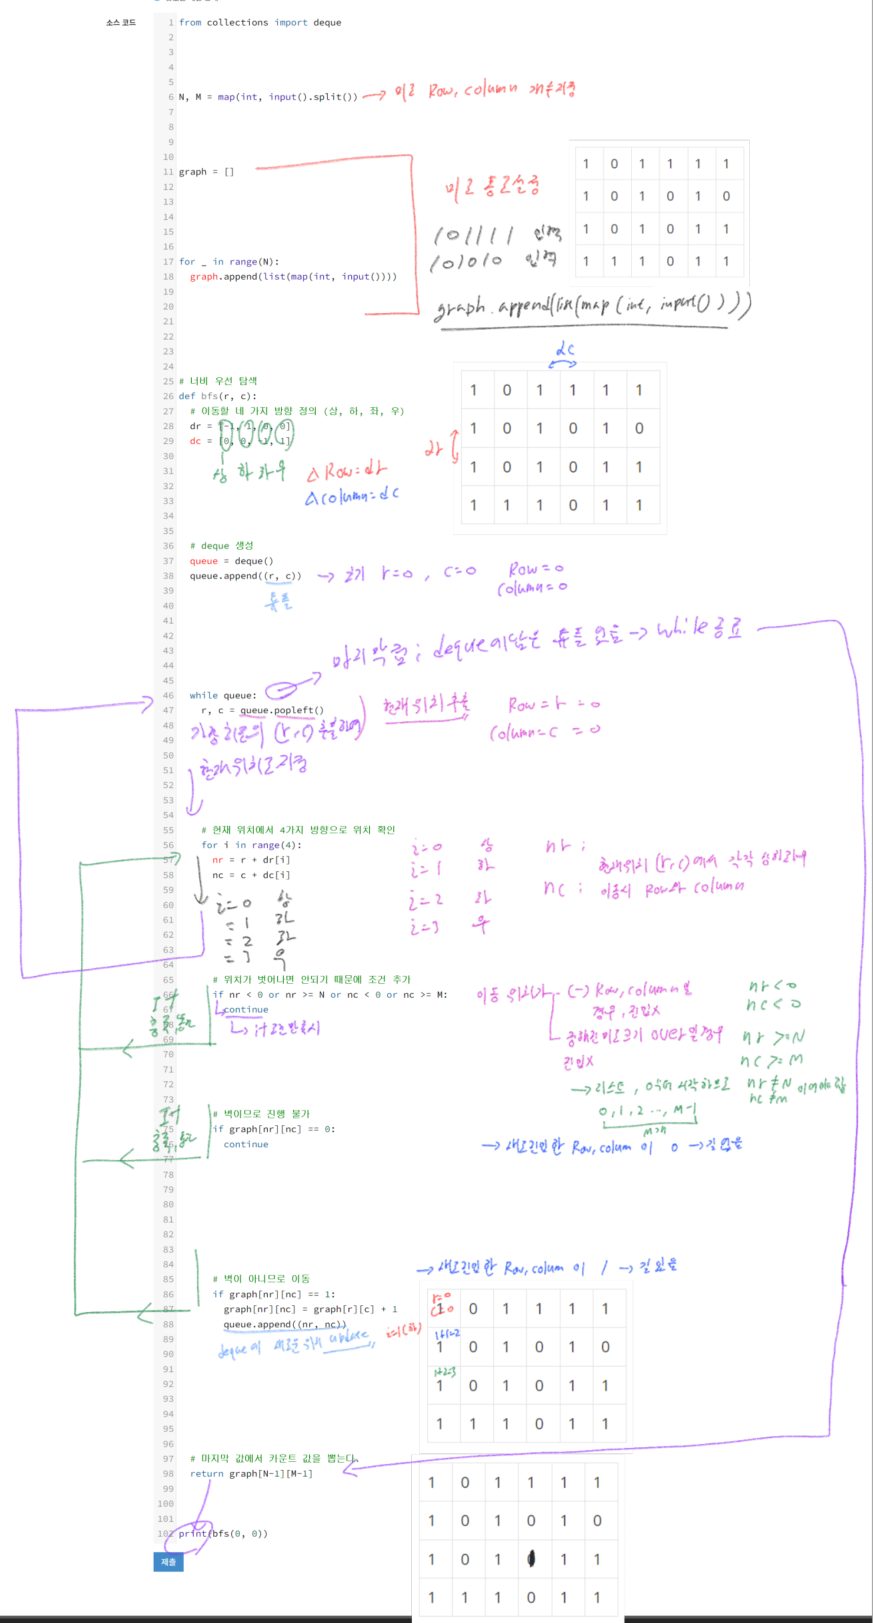 소스 코드
1 from collections import deque
2
3
4
5
6 N, M = map(int, input().split()) → 미로 Row, column 개수지정
7
8
9
10
11 graph = []
12
13
14
15
16
17 for _ in range(N):
18 graph.append(list(map(int, input())))
19
20
21
22
23
24
미로 통로설정
101111 입력
101010 입력
graph.append(list(map(int, input())))
1 0 1 1 1 1
1 0 1 0 1 0
1 0 1 0 1 1
1 1 1 0 1 1
25 # 너비 우선 탐색
26 def bfs(r, c):
27 # 이동할 네 가지 방향 정의 (상, 하, 좌, 우)
28 dr = [-1, 1, 0, 0]
29 dc = [0, 0, -1, 1]
30
31
32
33
34
35
상 하 좌 우
△Row=dr
△column=dc
dc
dr
1 0 1 1 1 1
1 0 1 0 1 0
1 0 1 0 1 1
1 1 1 0 1 1
36 # deque 생성
37 queue = deque()
38 queue.append((r, c)) → 초기 r=0, c=0 Row=0
column=0
튜플
39
40
41
42
43
44
45
마지막 ; deque에 남은 튜플 → while 종료
46 while queue:
47 r, c = queue.popleft() 현재위치 추출 Row=r=0
column=c=0
가장 왼쪽의 (r,c) 추출하여
현재위치로 지정
48
49
50
51
52
53
54
55 # 현재 위치에서 4가지 방향으로 위치 확인
56 for i in range(4):
57 nr = r + dr[i]
58 nc = c + dc[i]
59
60
61
62
63
64
i=0 상
=1 하
=2 좌
=3 우
i=0 상
i=1 하
i=2 좌
i=3 우
nr ;
현재위치 (r,c)에서 각각 상하좌우
nc ; 이동시 Row와 column
65 # 위치가 벗어나면 안되기 때문에 조건 추가
66 if nr < 0 or nr >= N or nc < 0 or nc >= M:
67 continue
68
69
70
71
72
73
이동 위치가 (-) Row, column일
경우, 진입X
nr<0
nc<0
정해진 미로크기 over일 경우
진입X
nr>=N
nc>=M
→리스트, 0부터 시작하므로 nr≠N 이어야 함
nc≠M
0,1,2..., M-1
M개
74 # 벽이므로 진행 불가
75 if graph[nr][nc] == 0:
76 continue
→ 새로진입한 Row, colum 이 0 → 길 없음
77
78
79
80
81
82
83
84
→ 새로진입한 Row, colum 이 1 → 길 있음
85 # 벽이 아니므로 이동
86 if graph[nr][nc] == 1:
87 graph[nr][nc] = graph[r][c] + 1
88 queue.append((nr, nc))
deque에 새로운 위치 update
i=1(하)
89
90
91
92
93
94
95
96
r=0
c=0
1+1=2
1+2=3
1 0 1 1 1 1
1 0 1 0 1 0
1 0 1 0 1 1
1 1 1 0 1 1
97 # 마지막 값에서 카운트 값을 뽑는다.
98 return graph[N-1][M-1]
99
100
101
102 print(bfs(0, 0))
1 0 1 1 1 1
1 0 1 0 1 0
1 0 1 0 1 1
1 1 1 0 1 1
제출